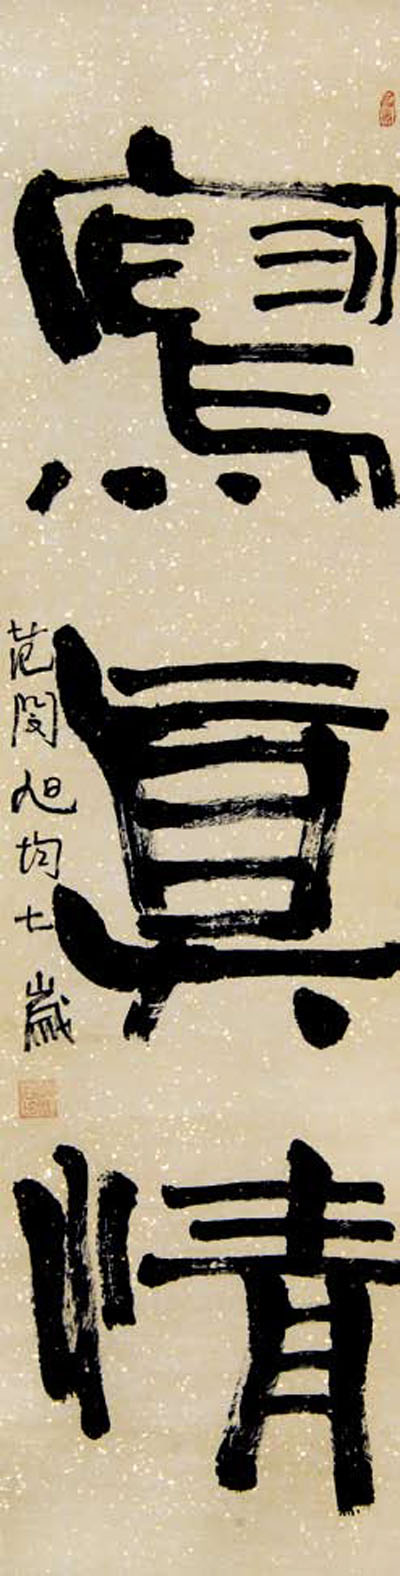 寫真情
范閔旭均七歲